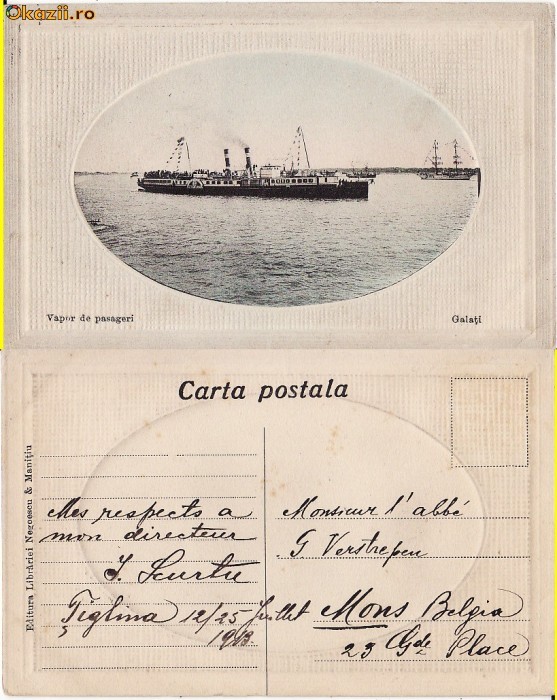 Okazii.ro
Vapor de pasageri
Galați
Carta postala
Editura Librăriei Negoescu & Manițiu
Mes respects a
mon directeur
J. Scurtu
Țiglina 12/25 Juillet
1913
Monsieur l'abbé
G Verstrepen
Mons Belgia
23 Gde Place